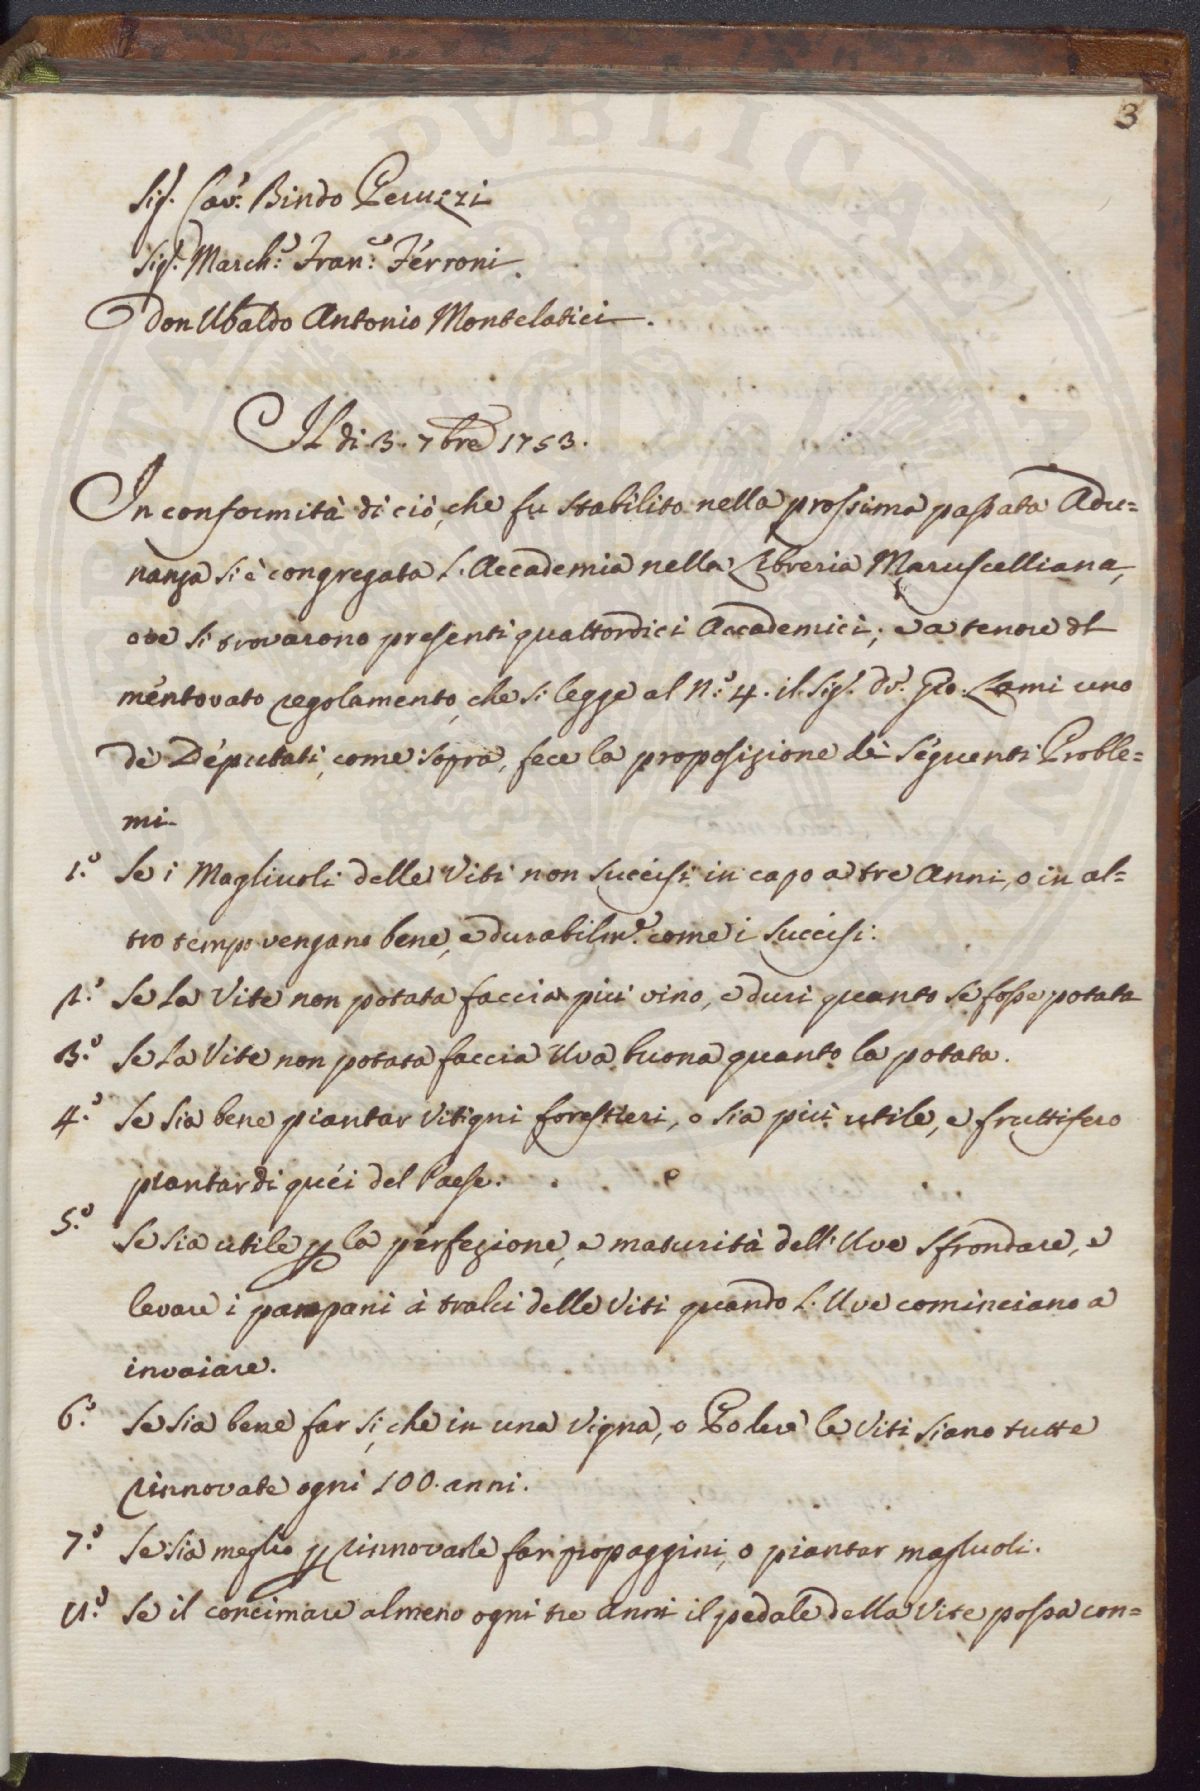 3
Sig.r Cav.r Bindo Peruzzi
Sig.r March.e Fran.co Ferroni.
Don Ubaldo Antonio Montelatici.
Il di 3. 7bre 1753.
In conformità di ciò, che fu stabilito nella prossima passata Adu=
nanza si è congregata l'Accademia nella Libreria Maruscelliana,
ove si trovarono presenti quattordici Accademici; e a tenore del
mentovato regolamento, che si legge al N.o 4. il Sig.r D.r Gio. Lami uno
de Deputati, come sopra, fece la proposizione de seguenti Proble=
mi.
1.o Se i Magliuoli delle Viti non succisi in capo a tre Anni, o in al=
tro tempo vengano bene, e durabilm.e come i succisi.
2.o Se la Vite non potata faccia più vino, e duri quanto se fosse potata
3.o Se la Vite non potata faccia Uva buona quanto la potata.
4.o Se sia bene piantar Vitigni forestieri, o sia più utile, e fruttifero
piantar di quei del Paese.
5.o Se sia utile p la perfezione, e maturità dell'Uve sfrondare, e
levare i pampani à tralci delle Viti quando l'Uve cominciano a
invaiare.
6.o Se sia bene far sì, che in una vigna, o Podere le Viti siano tutte
rinnovate ogni 100. anni.
7.o Se sia meglio p rinnovarle far propaggini, o piantar magliuoli.
8.o Se il concimare almeno ogni tre anni il pedale della Vite possa con=